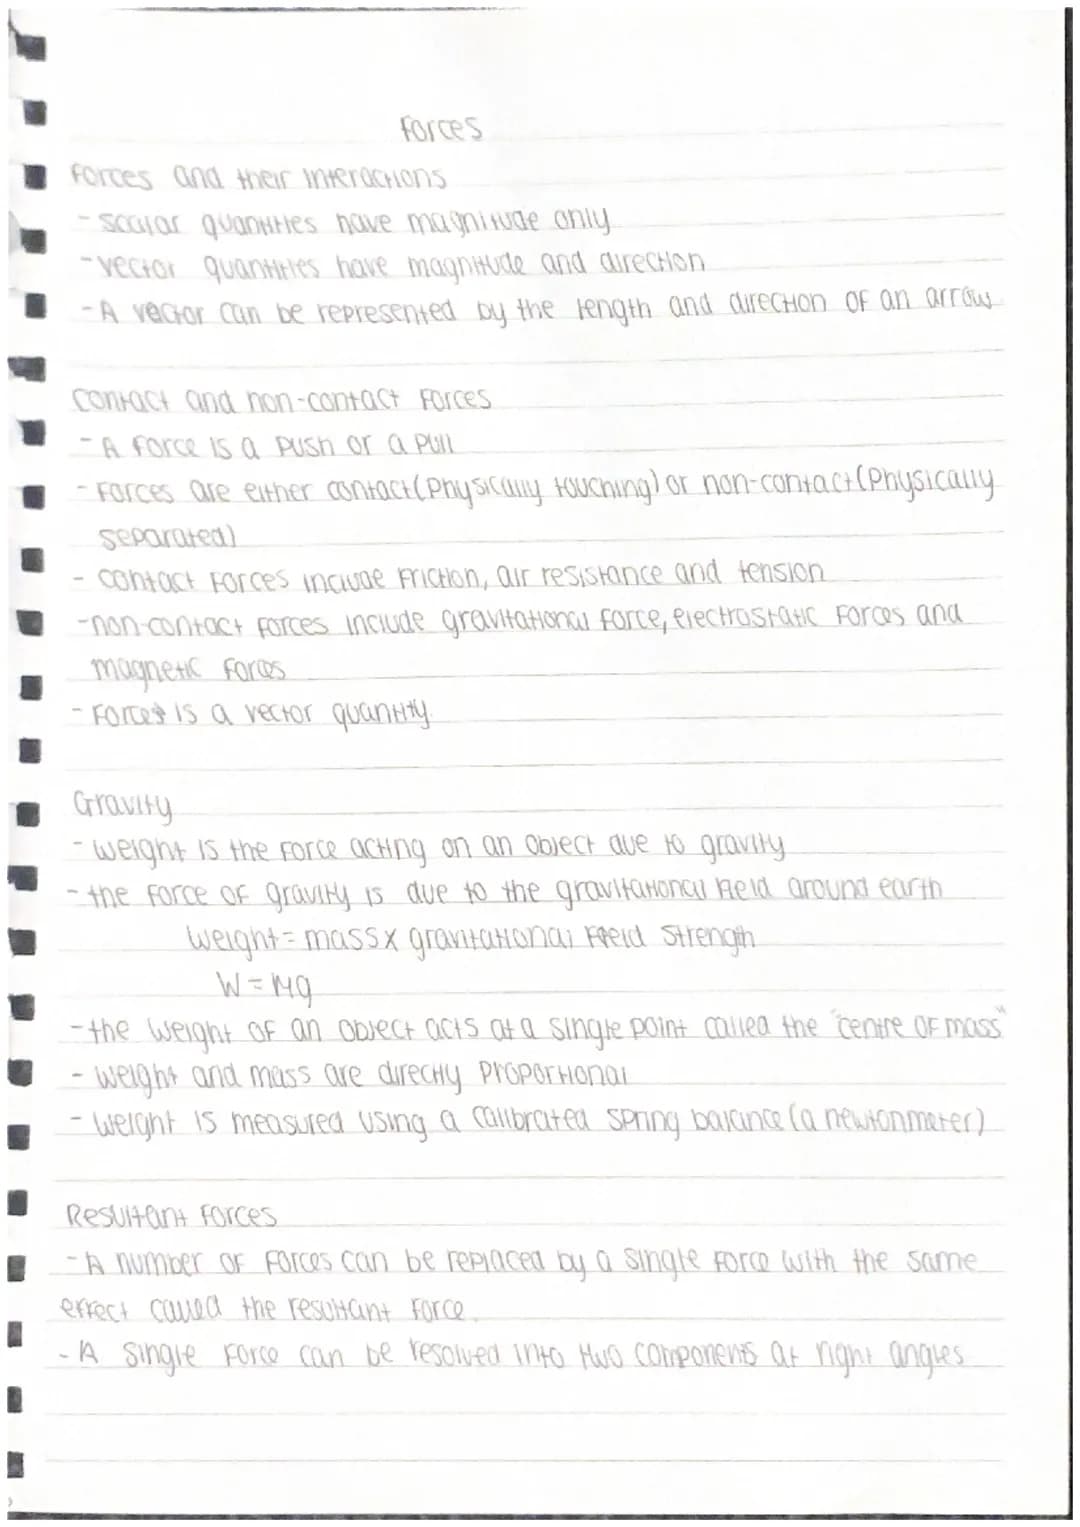 Forces
Forces and their interactions
- scalar quantities have magnitude only
- vector quantities have magnitude and direction
- A vector can be represented by the length and direction of an arrow
Contact and non-contact Forces
- A force is a push or a pull
- Forces are either contact (Physically touching) or non-contact (Physically
separated)
- contact Forces include Friction, air resistance and tension
- non-contact forces include gravitational force, electrostatic Forces and
magnetic forces
- Force is a vector quantity.
Gravity
- weight is the Force acting on an object due to gravity
- the Force of gravity is due to the gravitational field around earth
weight = mass x gravitational Field Strength
W = Mg
- the weight of an object acts at a single point called the "centre of mass"
- weight and mass are directly proportional
- weight is measured using a calibrated spring balance (a newtonmeter)
Resultant Forces
- A number of Forces can be replaced by a single force with the same
effect called the resultant Force.
- A single Force can be resolved into two components at right angles